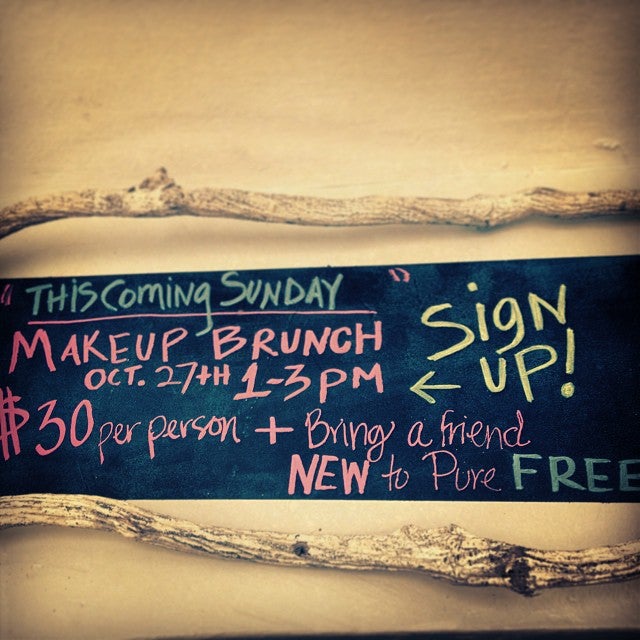 "THIS COMING SUNDAY"
MAKEUP BRUNCH
OCT. 27TH 1-3PM
$30 per person + Bring a friend
NEW to Pure FREE
SIGN
← UP!